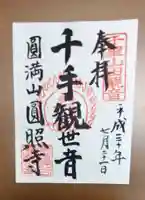 奉拝
平成三十年
七月二十一日
千手観世音
圓満山圓照寺